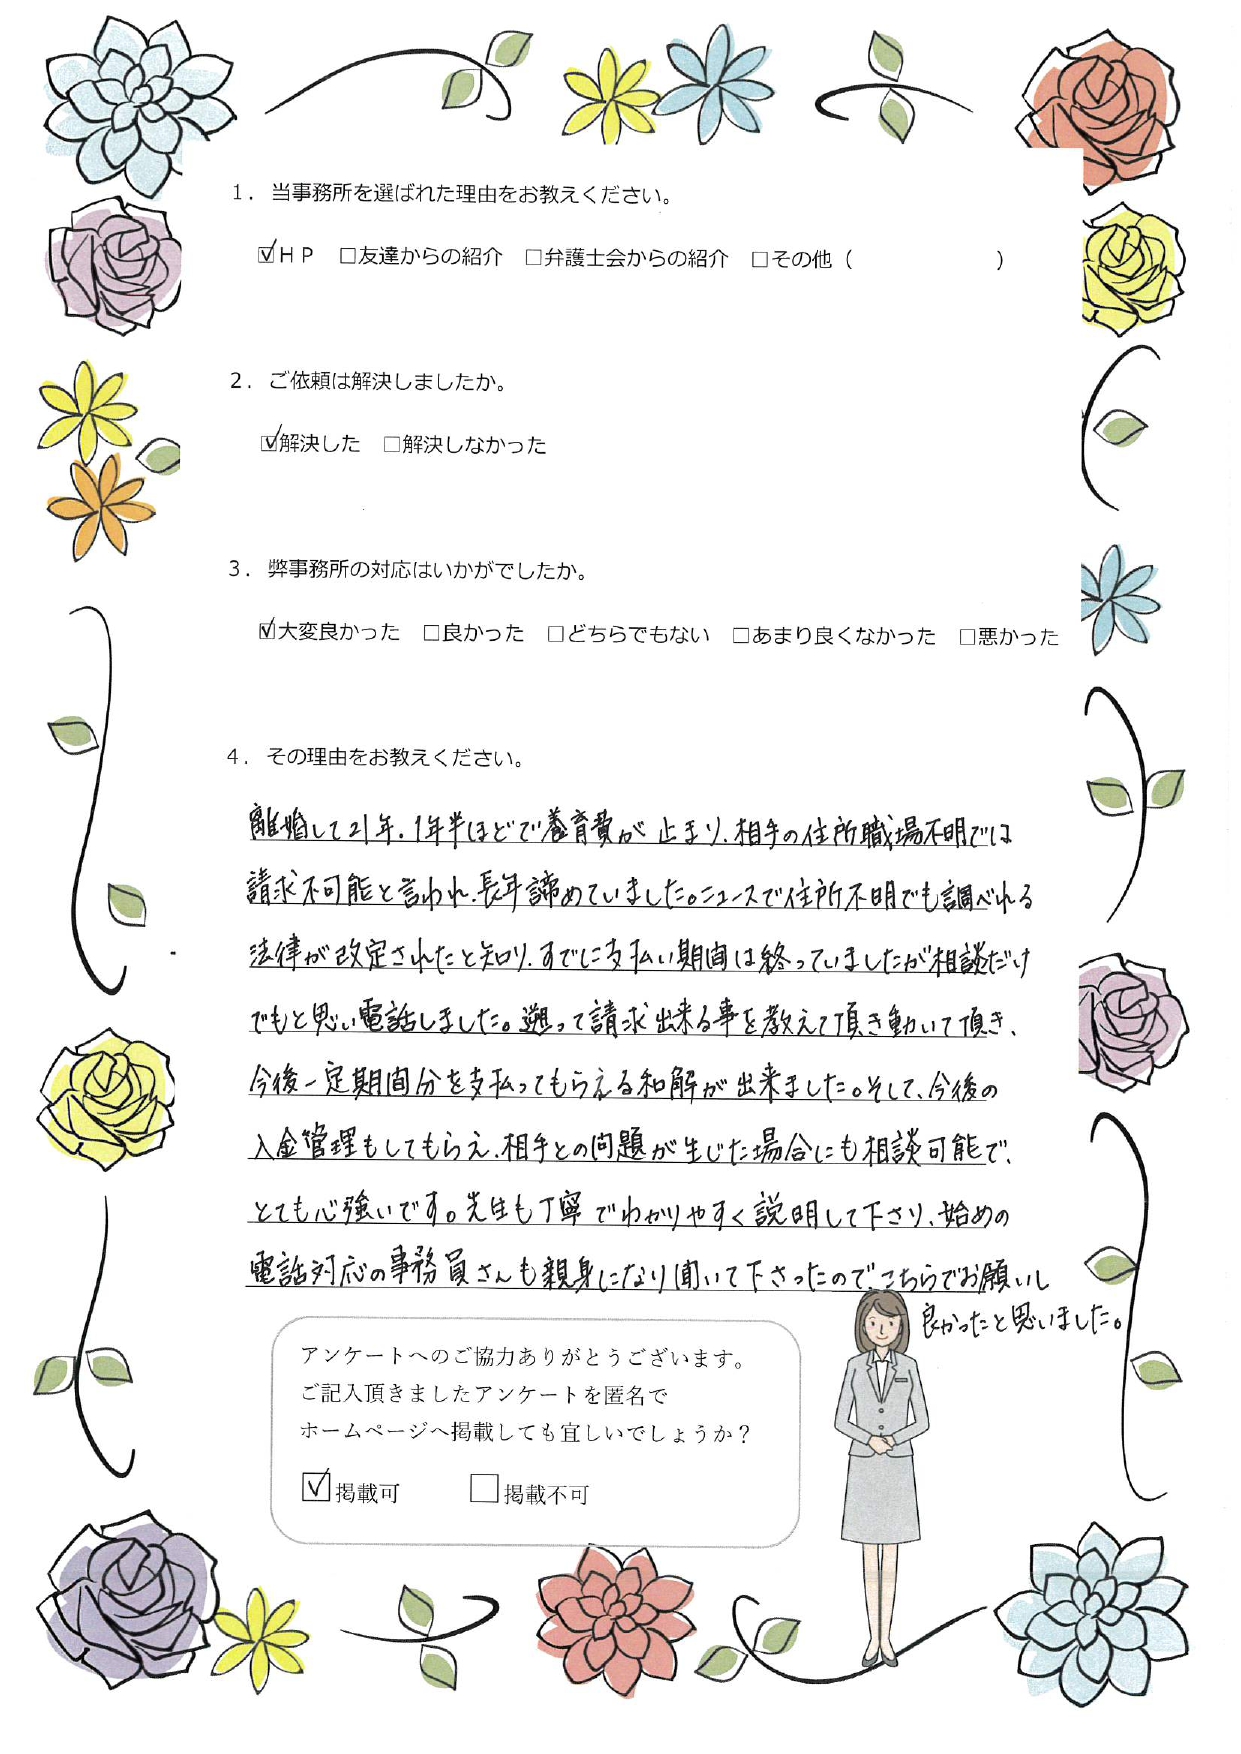 １．当事務所を選ばれた理由をお教えください。
☑ＨＰ　□友達からの紹介　□弁護士会からの紹介　□その他（　　　　　　　）
２．ご依頼は解決しましたか。
☑解決した　□解決しなかった
３．弊事務所の対応はいかがでしたか。
☑大変良かった　□良かった　□どちらでもない　□あまり良くなかった　□悪かった
４．その理由をお教えください。
離婚して21年、1年半ほどで養育費が止まり、相手の住所職場不明では
請求不可能と言われ、長年諦めていました。ニュースで住所不明でも調べれる
法律が改定されたと知り、すでに支払い期間は終っていましたが相談だけ
でもと思い電話しました。遡って請求出来る事を教えて頂き動いて頂き、
今後一定期間分を支払ってもらえる和解が出来ました。そして、今後の
入金管理もしてもらえ、相手との問題が生じた場合にも相談可能で、
とても心強いです。先生も丁寧でわかりやすく説明して下さり、始めの
電話対応の事務員さんも親身になり聞いて下さったので、こちらでお願いし
良かったと思いました。
アンケートへのご協力ありがとうございます。
ご記入頂きましたアンケートを匿名で
ホームページへ掲載しても宜しいでしょうか？
☑掲載可　□掲載不可